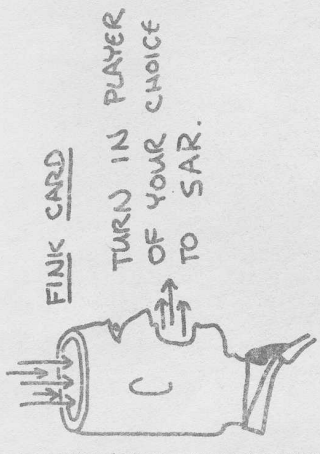 FINK CARD
TURN IN PLAYER
OF YOUR CHOICE
TO SAR.